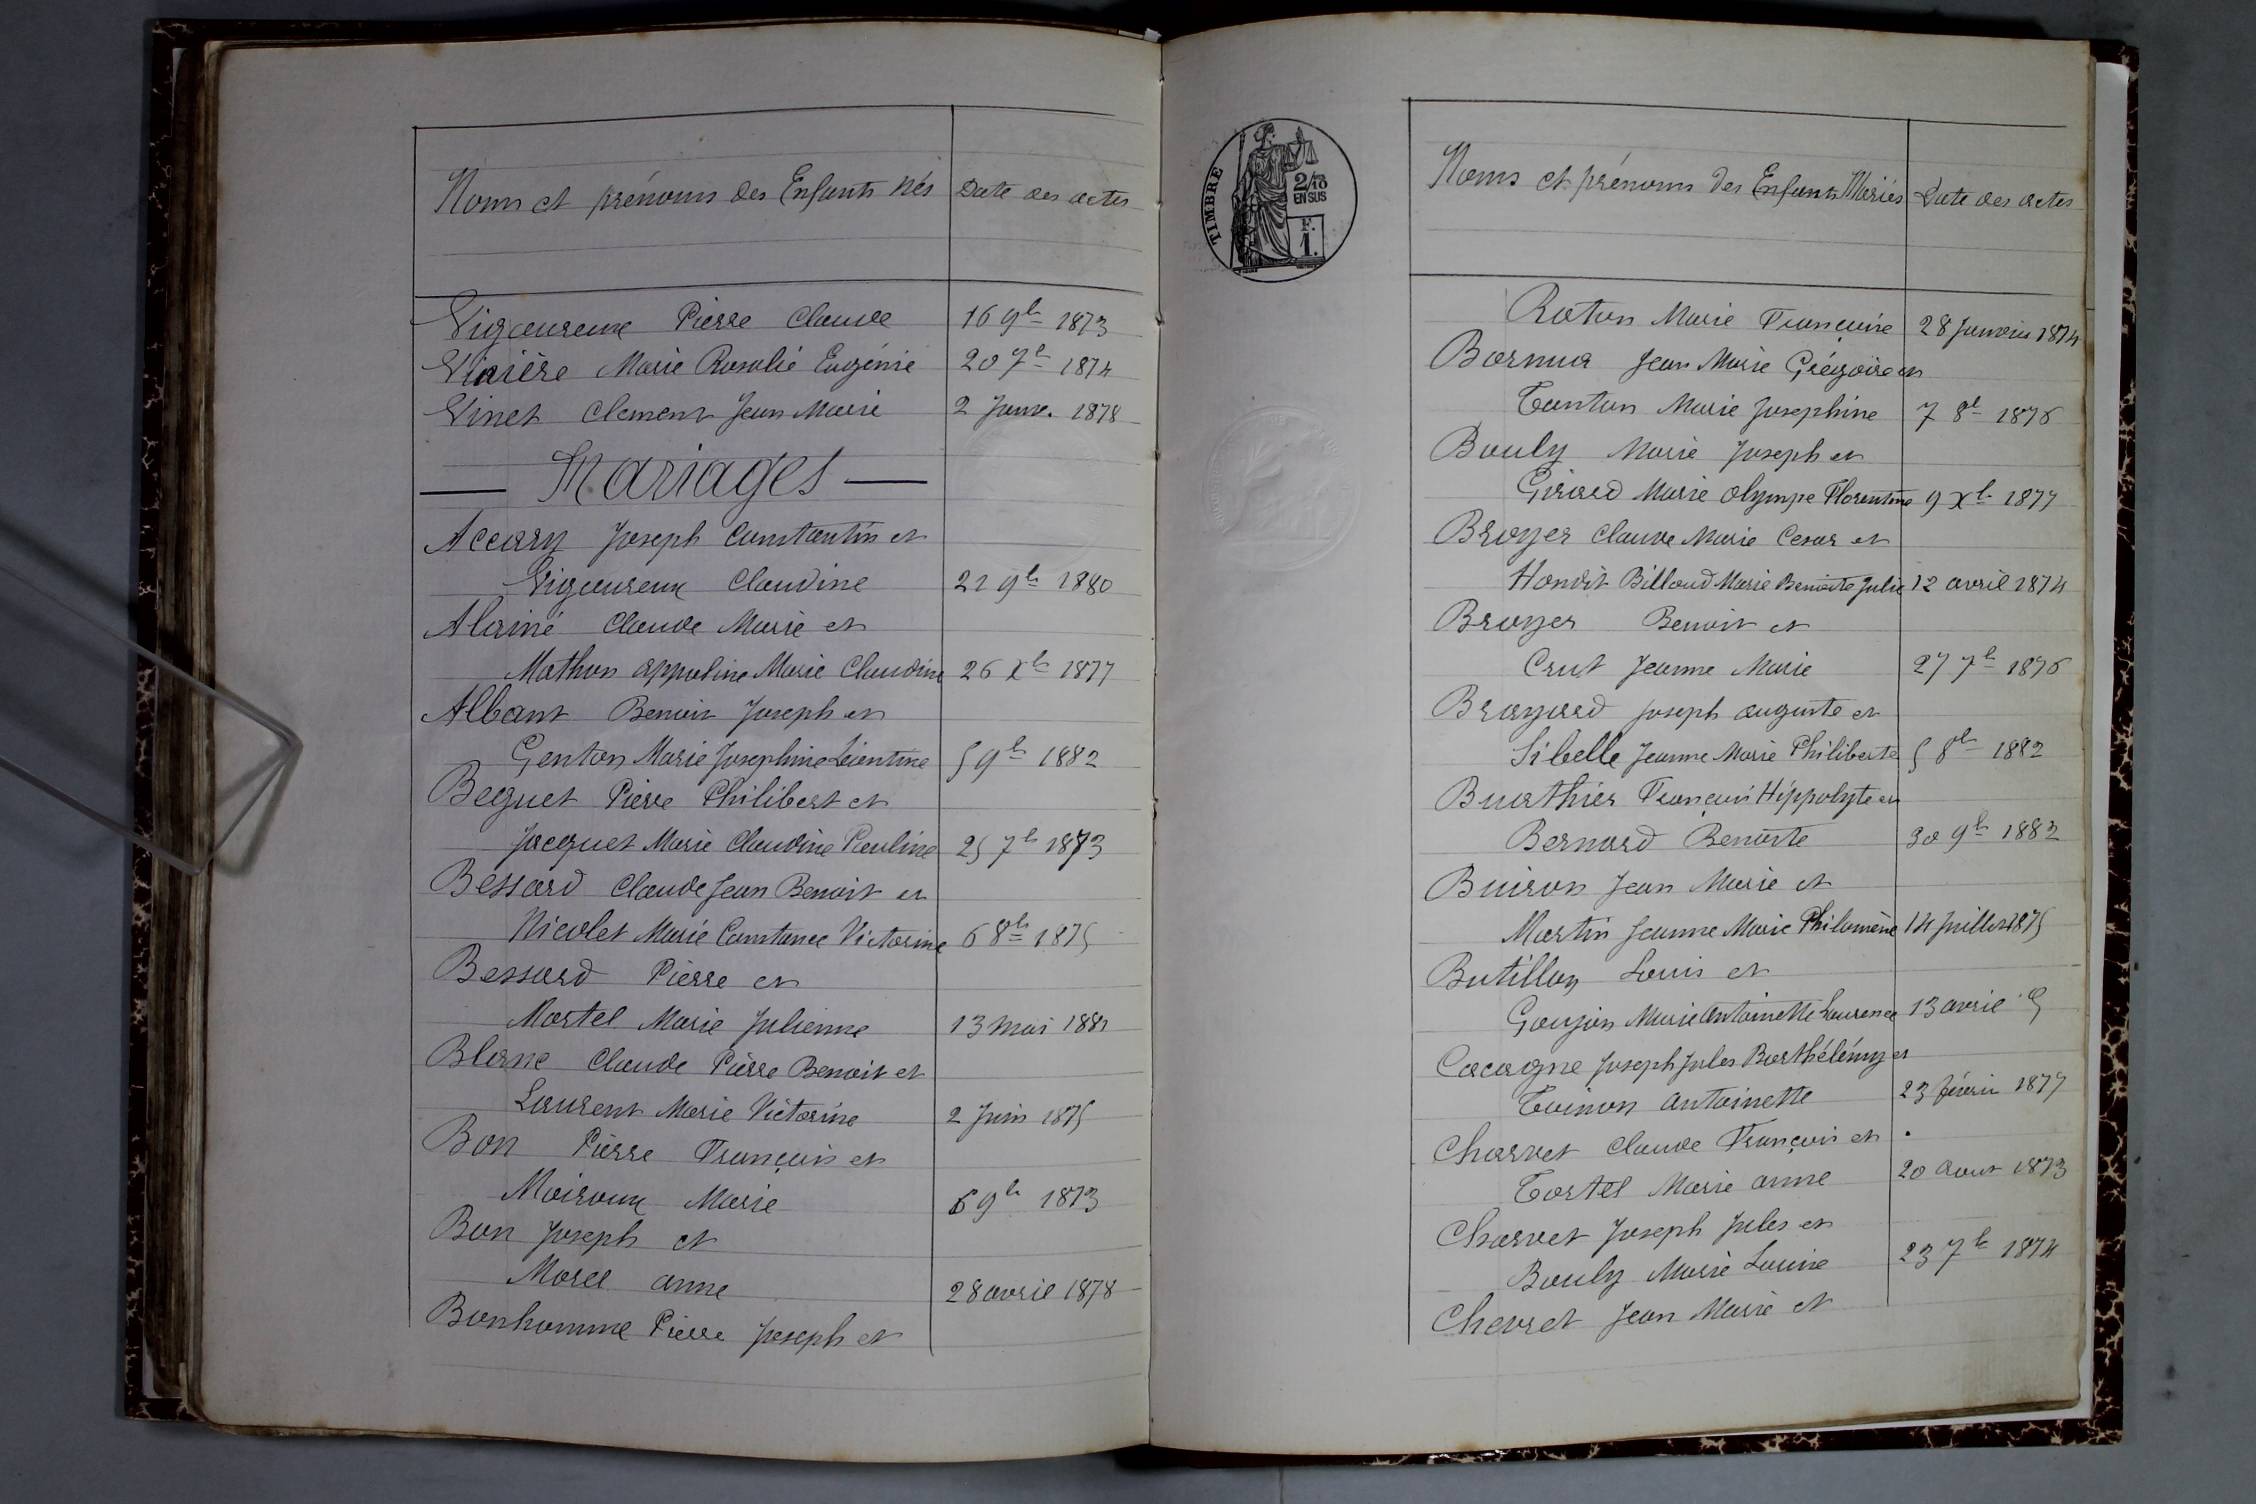 Noms et prénoms des Enfants nés Date des actes
Vigoureux Pierre Claude 16 9b 1873
Vivière Marie Rosalie Eugénie 20 7b 1874
Vinet Clement Jean Marie 2 Janv. 1878
Mariages
Accary Joseph Constantin et
Vigoureux Claudine 21 9b 1880
Alainé Claude Marie et
Mathon Appoline Marie Claudine 26 Xb 1877
Albant Benoit Joseph et
Genton Marie Josephine Léontine 5 9b 1882
Beguet Pierre Philibert et
Jacquet Marie Claudine Pauline 25 7b 1873
Bessard Claude Jean Benoit et
Nicolet Marie Constance Victorine 6 8b 1875
Bessard Pierre et
Martel Marie Julienne 13 mai 1881
Blanc Claude Pierre Benoit et
Laurent Marie Victorine 2 Juin 1875
Bon Pierre François et
Moiroux Marie 6 9b 1873
Bon Joseph et
Morel Anne 28 avril 1878
Bonhomme Pierre Joseph et
TIMBRE
2/10
EN SUS
F.
1.
Noms et prénoms des Enfants Mariés Date des actes
Raton Marie Françoise 28 Janvier 1874
Bornua Jean Marie Grégoire et
Tonton Marie Josephine 7 8b 1876
Bouly Marie Joseph et
Girard Marie Olympe Florentine 9 Xb 1877
Broyer Claude Marie Cesar et
Hondit Billoud Marie Benoite Julie 12 avril 1874
Broyer Benoit et
Crut Jeanne Marie 27 7b 1876
Brayard Joseph Auguste et
Sibelle Jeanne Marie Philiberte 5 8b 1882
Buathier François Hippolyte et
Bernard Benoite 30 9b 1882
Buiron Jean Marie et
Martin Jeanne Marie Philomène 14 Juillet 1875
Butillon Louis et
Goujon Marie Antoinette Laurence 13 avril
Cacagne Joseph Jules Barthélémy et
Toinon Antoinette 23 février 1877
Charvet Claude François et
Tortel Marie Anne 20 Aout 1873
Charvet Joseph Jules et
Bouly Marie Louise 23 7b 1874
Chevret Jean Marie et